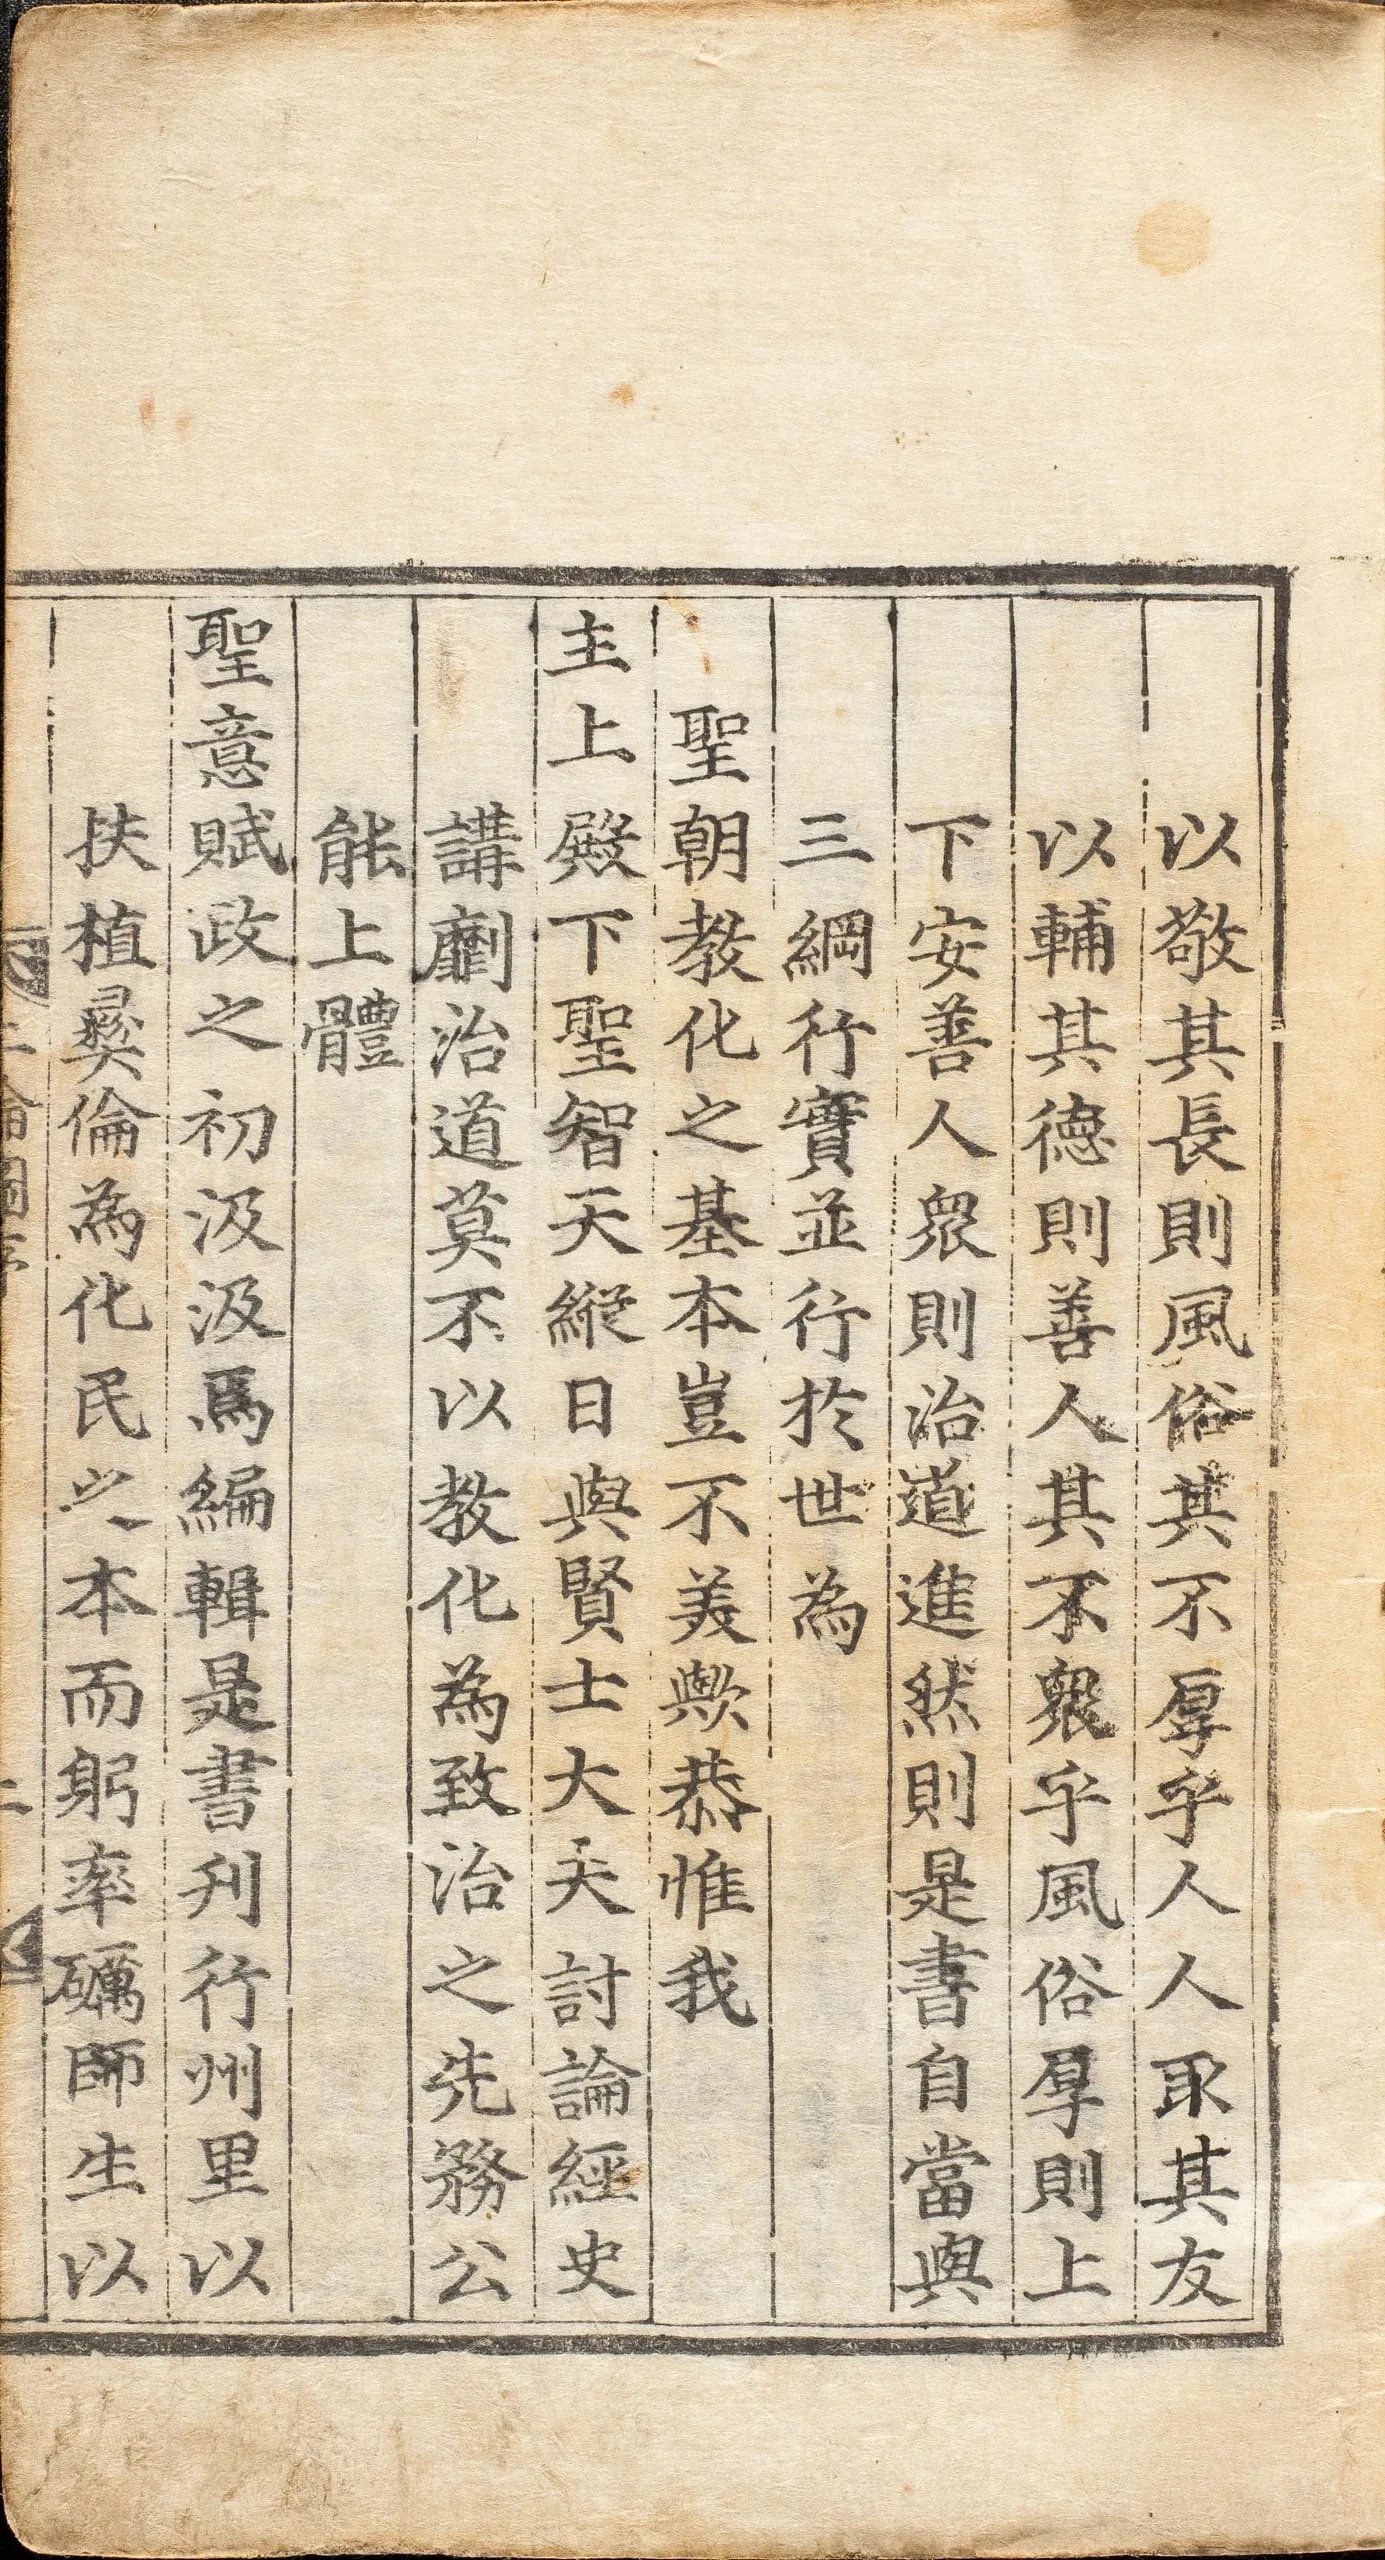 以敬其長則風俗其不厚乎人人取其友
以輔其德則善人其不衆乎風俗厚則上
下安善人衆則治道進然則是書自當與
三綱行實並行於世為
聖朝教化之基本豈不美歟恭惟我
主上殿下聖智天縱日與賢士大夫討論經史
講劘治道莫不以教化為致治之先務公
能上體
聖意賦政之初汲汲焉編輯是書刋行州里以
扶植彛倫為化民之本而躬率礪師生以
二